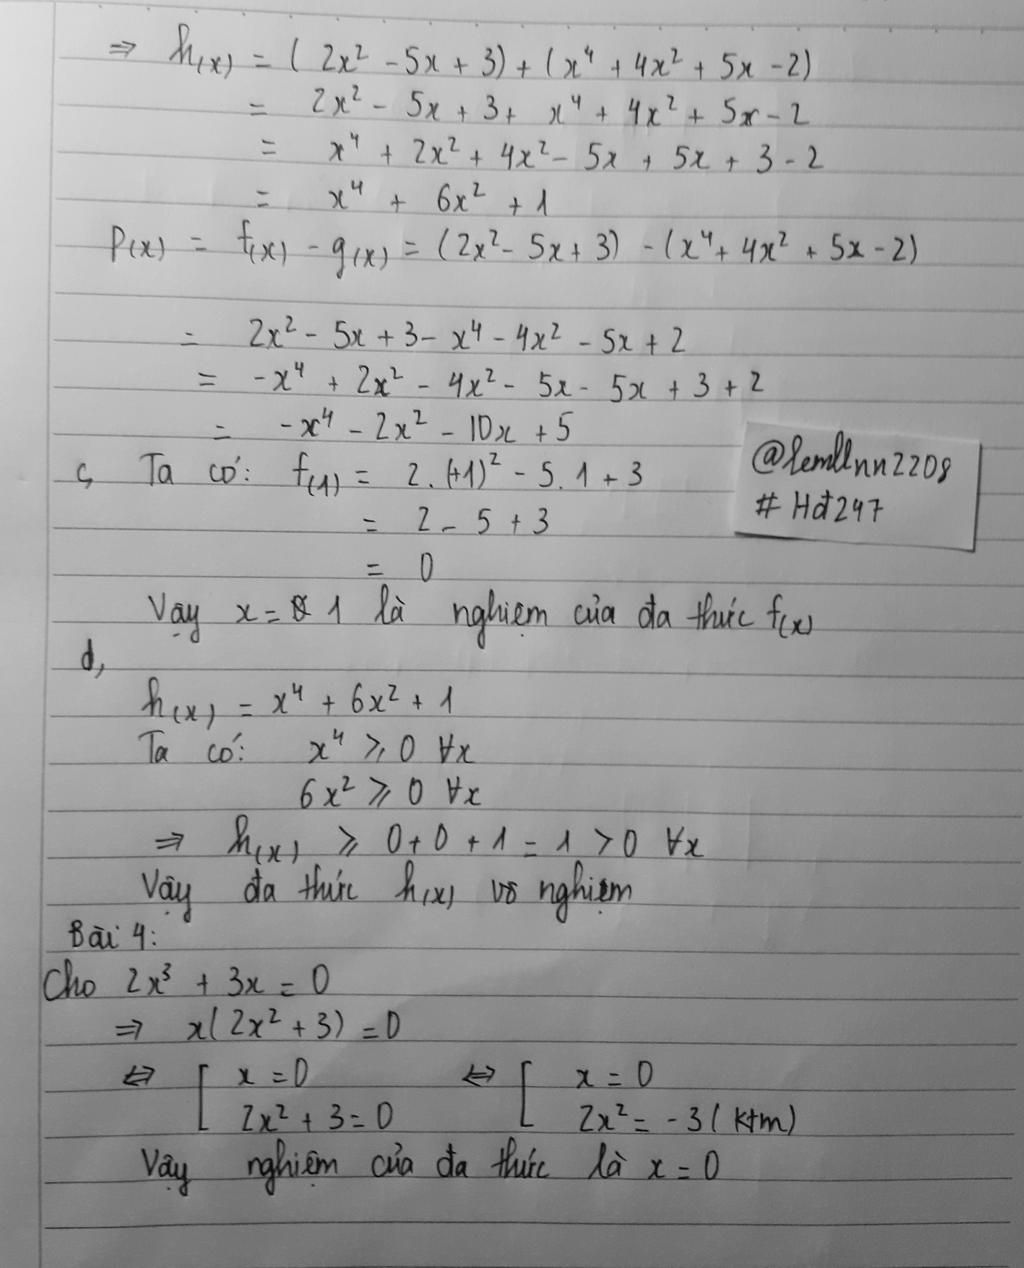 ⇒ h(x) = ( 2x² - 5x + 3) + (x⁴ + 4x² + 5x - 2)
= 2x² - 5x + 3 + x⁴ + 4x² + 5x - 2
= x⁴ + 2x² + 4x² - 5x + 5x + 3 - 2
= x⁴ + 6x² + 1
P(x) = f(x) - g(x) = (2x² - 5x + 3) - (x⁴ + 4x² + 5x - 2)
= 2x² - 5x + 3 - x⁴ - 4x² - 5x + 2
= -x⁴ + 2x² - 4x² - 5x - 5x + 3 + 2
= -x⁴ - 2x² - 10x + 5
c, Ta có: f(1) = 2.(+1)² - 5.1 + 3
= 2 - 5 + 3
= 0
@lemllnn2208
# Hđ247
Vậy x = 1 là nghiệm của đa thức f(x)
d,
h(x) = x⁴ + 6x² + 1
Ta có: x⁴ ⩾ 0 ∀x
6x² ⩾ 0 ∀x
⇒ h(x) ⩾ 0 + 0 + 1 = 1 > 0 ∀x
Vậy đa thức h(x) vô nghiệm
Bài 4:
Cho 2x³ + 3x = 0
⇒ x(2x² + 3) = 0
⇔ [ x = 0 ⇔ [ x = 0
2x² + 3 = 0 2x² = -3 ( ktm)
Vậy nghiệm của đa thức là x = 0